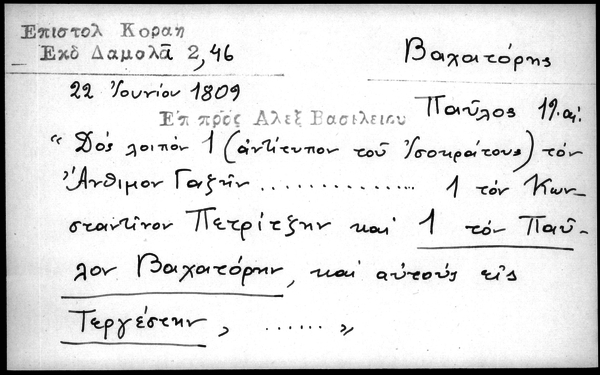 Επιστολ Κοραη
Εκδ Δαμολᾶ 2,46
Βαχατόρης
22 Ἰουνίου 1809
Παῦλος 19.αἰ.
Επ πρὸς Αλεξ Βασιλειου
" Δός λοιπόν 1 (ἀντίτυπον τοῦ Ἰσοκράτους) τόν
Ἄνθιμον Γαζῆν .............. 1 τόν Κων-
σταντῖνον Πετρίτζην καί 1 τόν Παῦ-
λον Βαχατόρην, καί αὐτούς εἰς
Τεργέστην, ...... "